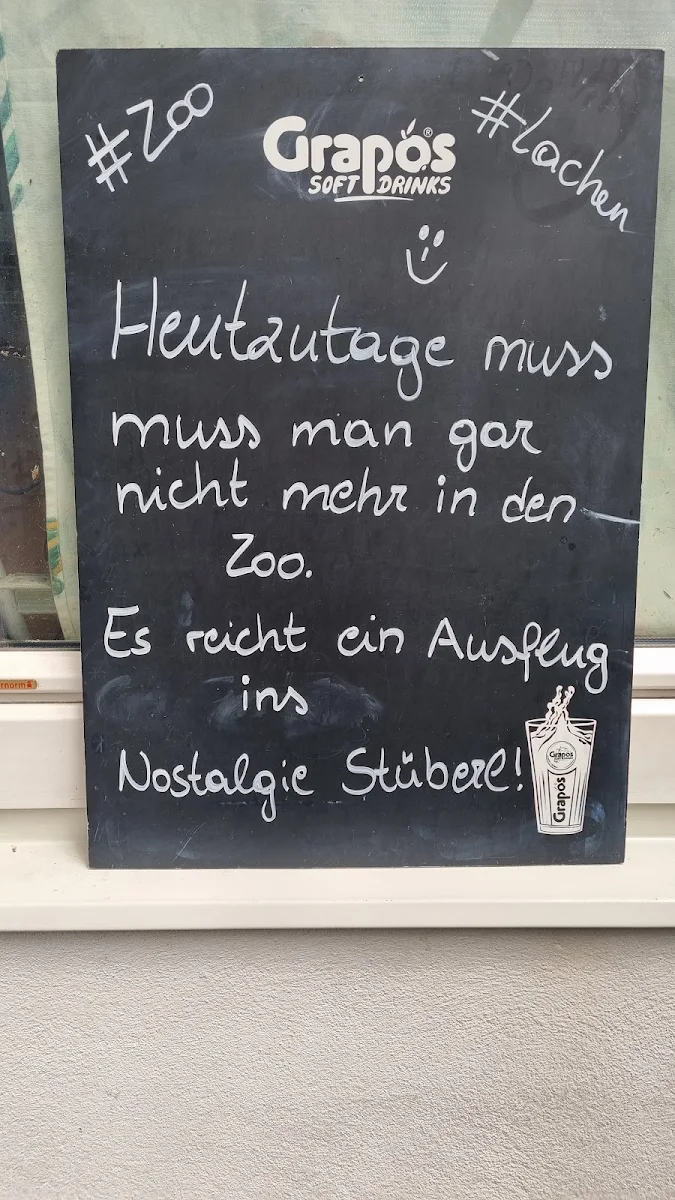 #Zoo
#Lachen
Grapos®
SOFT DRINKS
Heutzutage muss
muss man gar
nicht mehr in den
Zoo.
Es reicht ein Ausflug
ins
Nostalgie Stüberl!
Grapos
Grapos